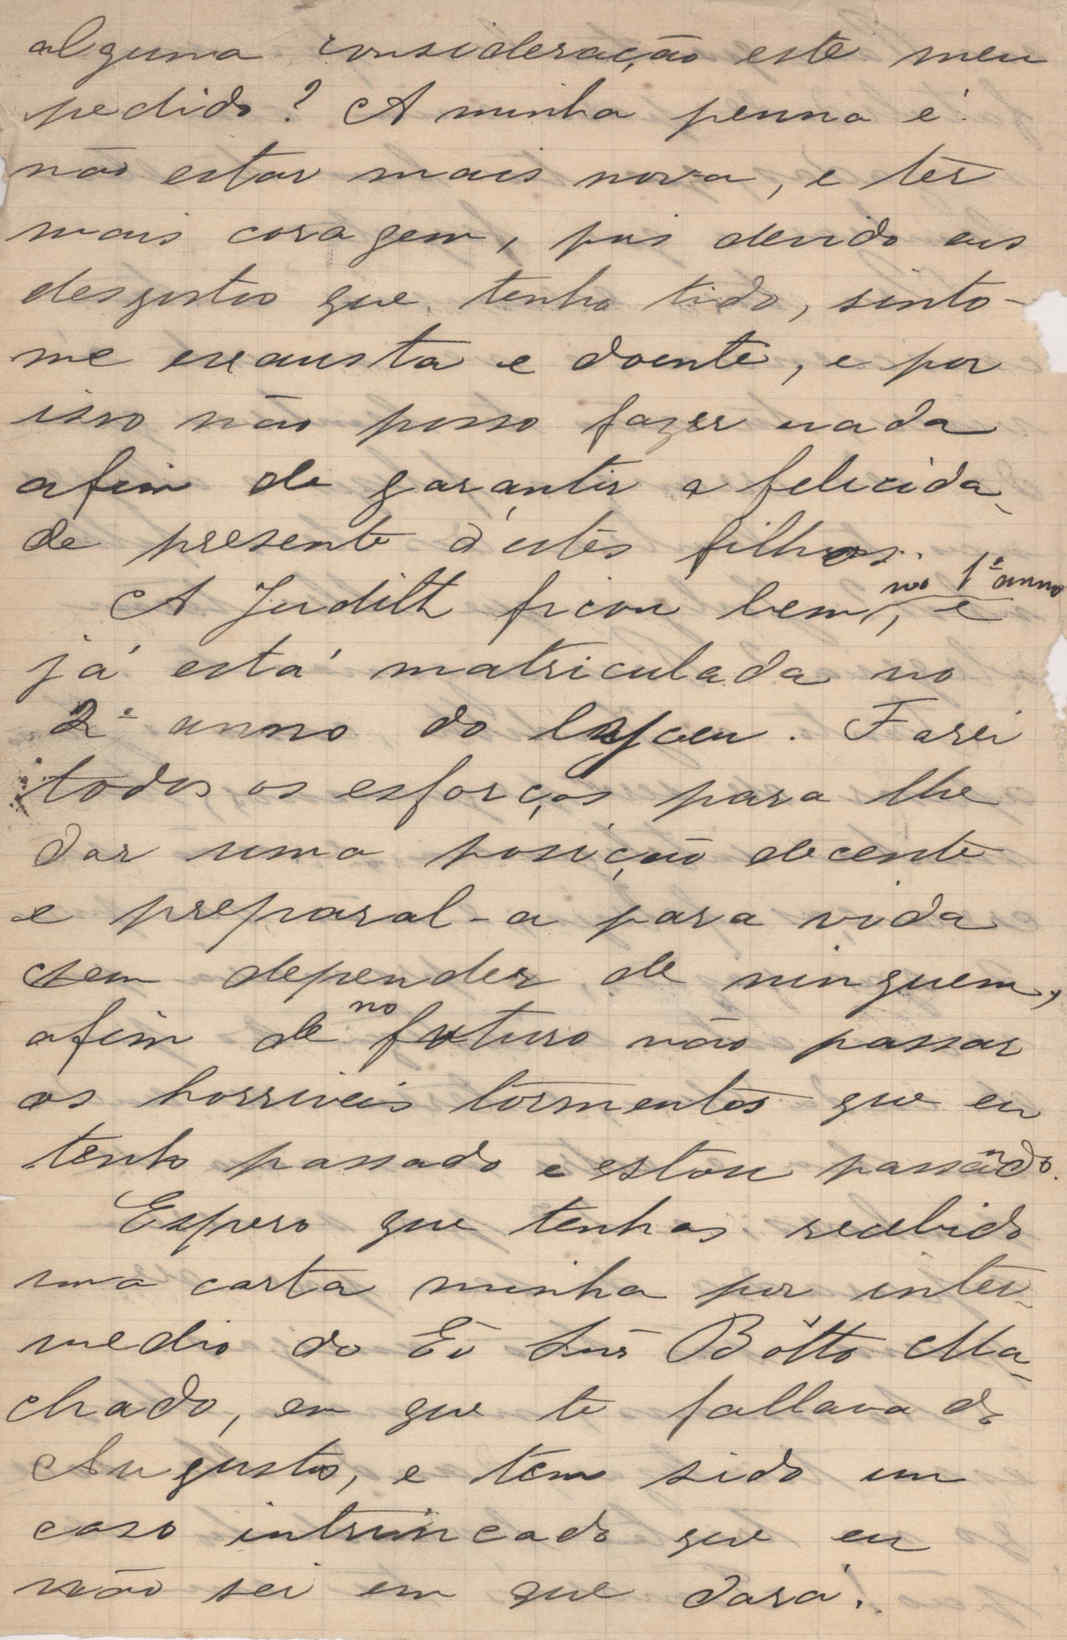 alguma consideração este meu
pedido? A minha penna é
não estar mais nova, e ter
mais coragem, pois devido aos
desgostos que tenho tido, sinto-
me exausta e doente, e por
isso não posso fazer nada
afim de garantir a felicida-
de presente d'estes filhos.
A Judith ficou bem, no 1º anno e
já está matriculada no
2º anno do lyceu. Farei
todos os esforços para lhe
dar uma posição decente
e preparal-a para vida
sem depender de ninguem,
afim de no futuro não passar
os horriveis tormentos que eu
tenho passado e estou passando.
Espero que tenhas recebido
uma carta minha por inter-
medio do Botto Ma-
chado, em que te fallava do
Augusto, e tem sido um
caso intrincado que eu
não sei em que dará!